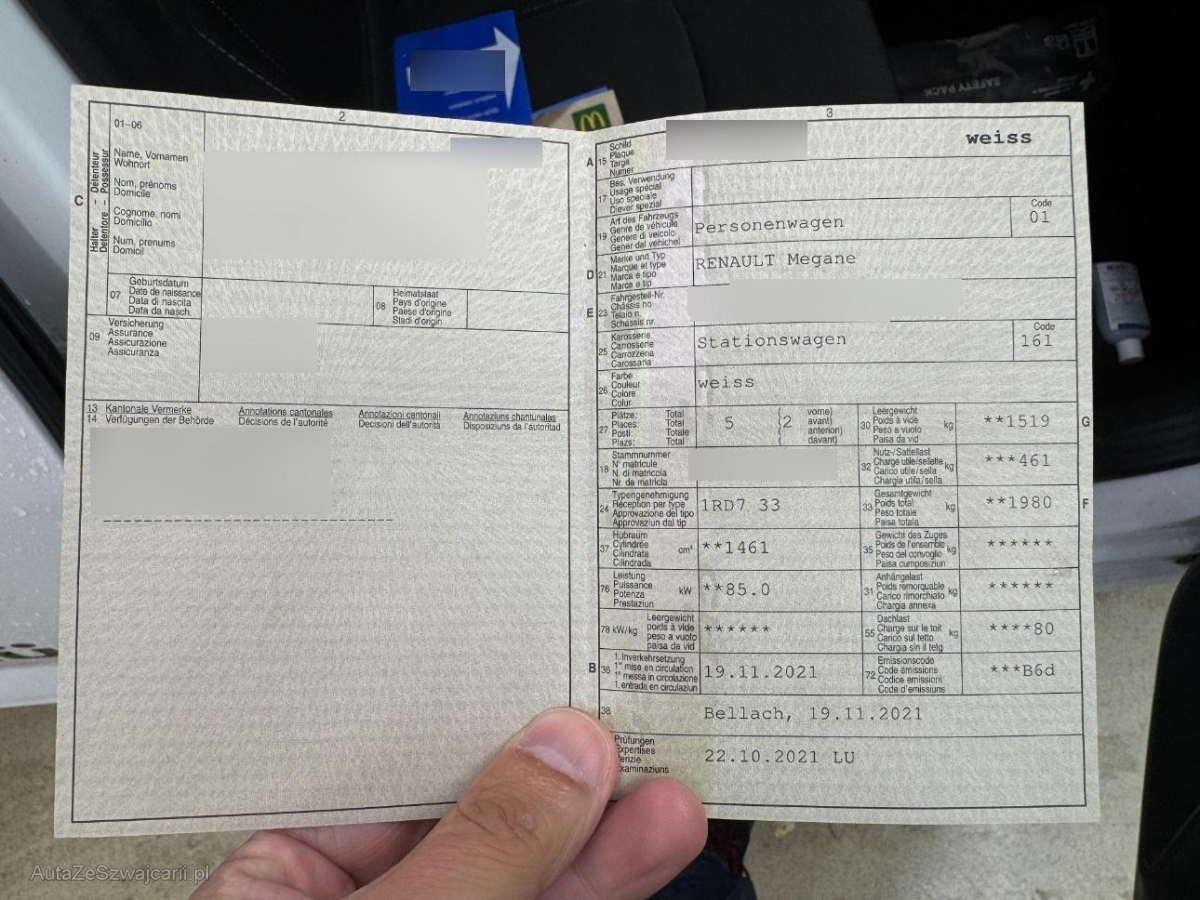 SAFETY PACK
2
01-06
Name, Vornamen
Wohnort
Nom, prénoms
Domicile
Cognome, nomi
Domicilio
Num, prenums
Domicil
C
Halter - Détenteur
Detentore - Possessur
07
Geburtsdatum
Date de naissance
Data di nascita
Data da nasch.
08
Heimatstaat
Pays d'origine
Paese d'origine
Stadi d'origin
09
Versicherung
Assurance
Assicurazione
Assicuranza
13
14
Kantonale Vermerke
Verfügungen der Behörde
Annotations cantonales
Décisions de l'autorité
Annotazioni cantonali
Decisioni dell'autorità
Annotaziuns chantunalas
Disposiziuns da l'autoritad
3
A
15
Schild
Plaque
Targa
Numer
weiss
17
Bes. Verwendung
Usage spécial
Uso speciale
Diever spezial
19
Art des Fahrzeugs
Genre de véhicule
Genere di veicolo
Gener dal vehichel
Personenwagen
Code
01
D
21
Marke und Typ
Marque et type
Marca e tipo
Marca e tip
RENAULT Megane
E
23
Fahrgestell-Nr.
Châssis no
Telaio n.
Schassis nr.
25
Karosserie
Carrosserie
Carrozzeria
Carossaria
Stationswagen
Code
161
26
Farbe
Couleur
Colore
Colur
weiss
27
Plätze: Total
Places: Total
Posti: Totale
Plazs: Total
5
(2
vorne)
avant)
anteriori)
davant)
30
Leergewicht
Poids à vide
Peso a vuoto
Paisa da vid
kg
**1519
G
18
Stammnummer
N° matricule
N. di matricola
Nr. da matricla
32
Nutz-/Sattellast
Charge utile/sellette
Carico utile/sella
Chargia utila/sella
kg
***461
24
Typengenehmigung
Réception par type
Approvazione del tipo
Approvaziun dal tip
1RD7 33
33
Gesamtgewicht
Poids total
Peso totale
Paisa totala
kg
**1980
F
37
Hubraum
Cylindrée
Cilindrata
Cilindrada
cm³
**1461
35
Gewicht des Zuges
Poids de l'ensemble
Peso del convoglio
Paisa cumposiziun
kg
******
76
Leistung
Puissance
Potenza
Prestaziun
kW
**85.0
31
Anhängelast
Poids remorquable
Carico rimorchiato
Chargia annexa
kg
******
78 kW/kg
Leergewicht
poids à vide
peso a vuoto
paisa da vid
******
55
Dachlast
Charge sur le toit
Carico sul tetto
Chargia sin il tetg
kg
****80
B
36
1. Inverkehrsetzung
1re mise en circulation
1a messa in circolazione
1. entrada en circulaziun
19.11.2021
72
Emissionscode
Code émissions
Codice emissioni
Code d'emissiuns
***B6d
38
Bellach, 19.11.2021
Prüfungen
Expertises
enzie
xaminaziuns
22.10.2021 LU
AutaZeSzwajcarii.pl